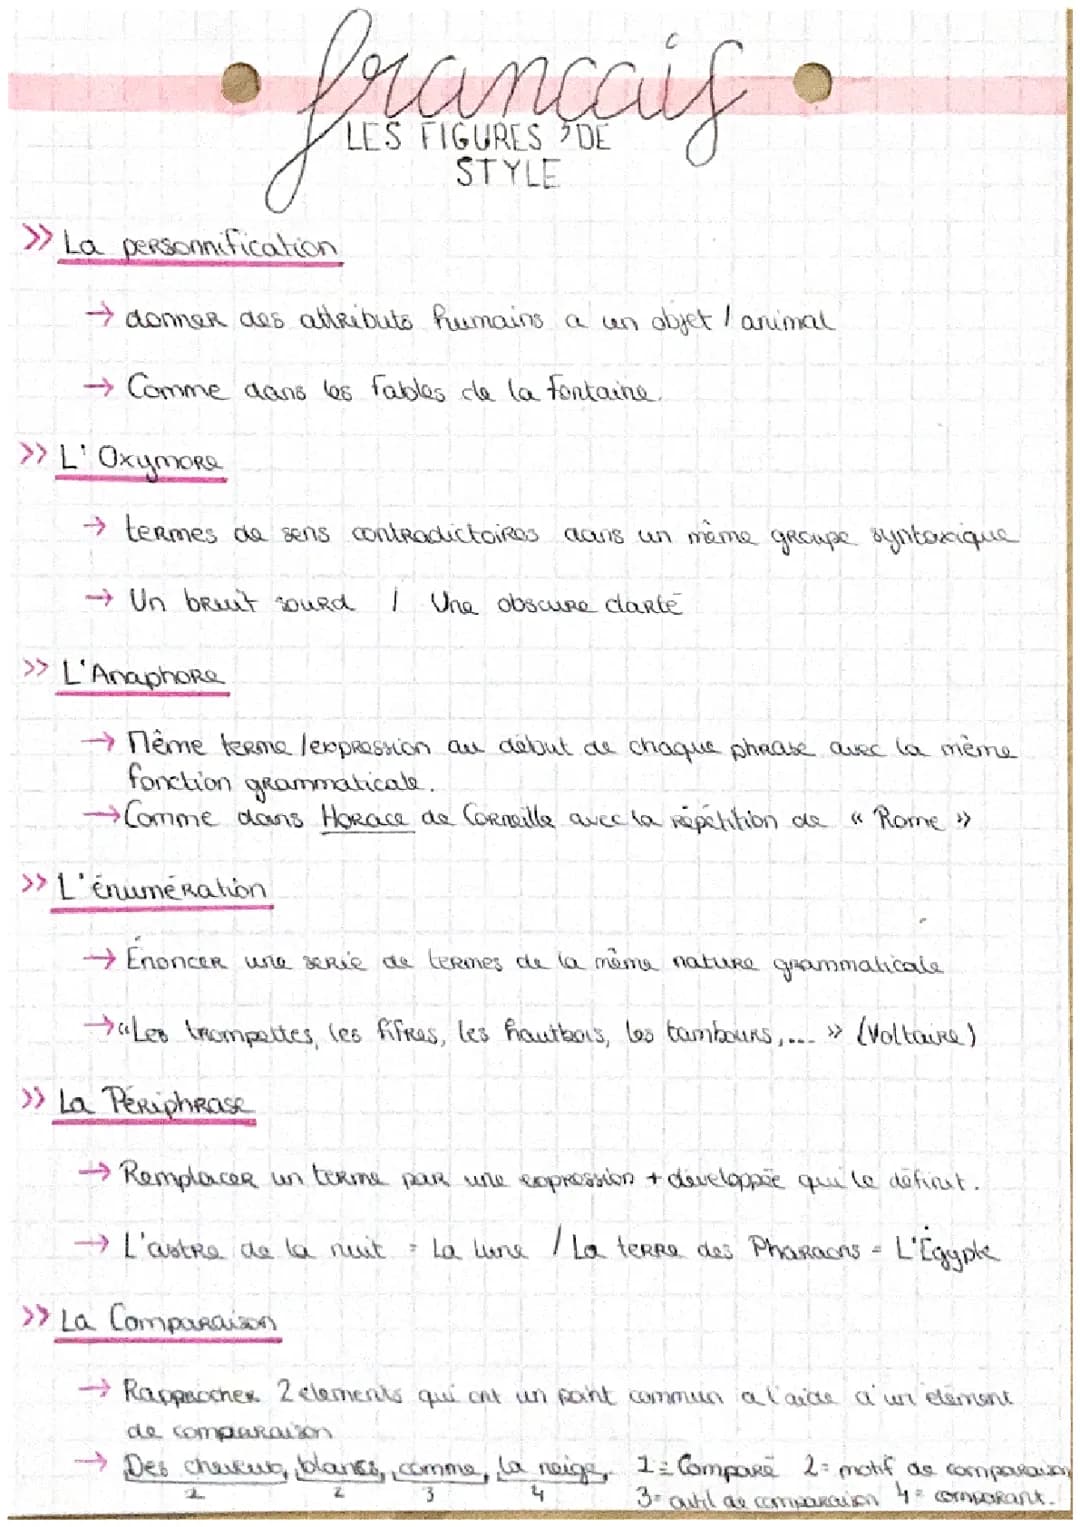 francais
LES FIGURES DE
STYLE
>> La personnification
→ donner des attributs humains a un objet / animal
→ Comme dans les fables de la fontaine.
>> L'Oxymore
→ termes de sens contradictoires dans un même groupe syntaxique
→ Un bruit sourd / Une obscure clarté
>> L'Anaphore
→ Même terme /expression au début de chaque phrase avec la même
fonction grammaticale.
→ Comme dans Horace de Corneille avec la répétition de « Rome »
>> L'énumération
→ Énoncer une serie de termes de la même nature grammaticale
→ «Les trompettes, les fifres, les hautbois, les tambours,... » (Voltaire)
>> La Périphrase
→ Remplacer un terme par une expression + développée qui le définit.
→ L'astre de la nuit = La lune / La terre des Pharaons = L'Égypte
>> La Comparaison
→ Rapprocher 2 elements qui ont un point commun a l'aide d'un élément
de comparaison
→ Des cheveux, blancs, comme, la neige, 1= Comparé 2= motif de comparaison
1 2 3 4 3= outil de comparaison 4= comparant.